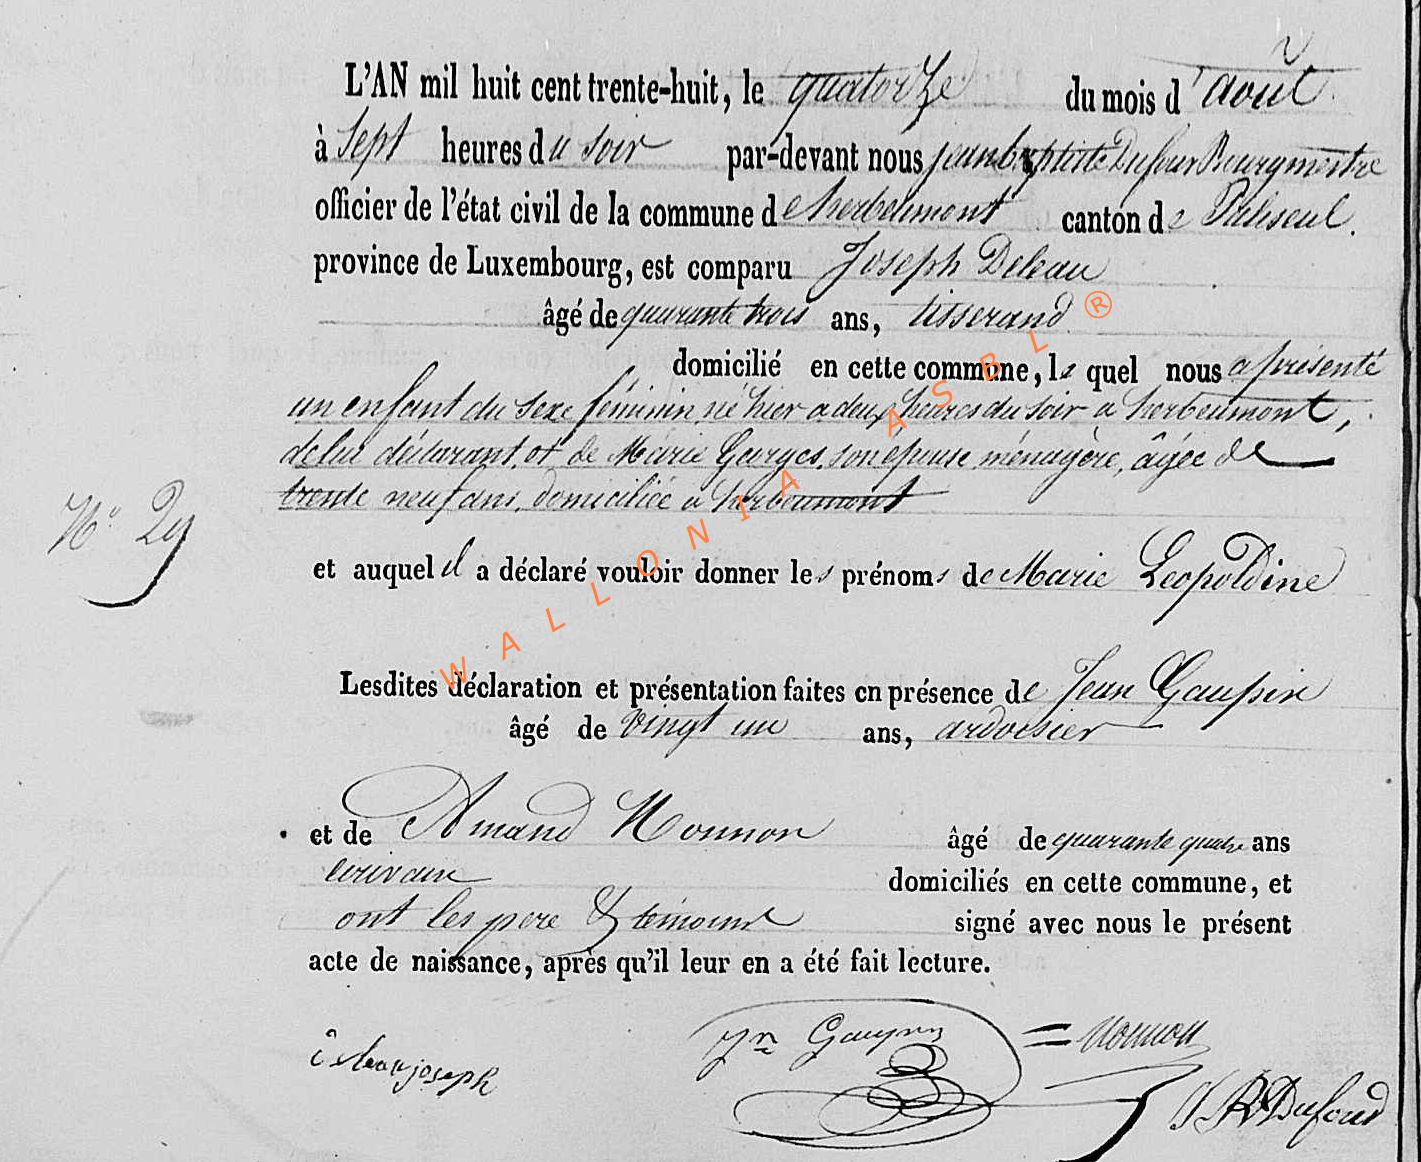 L'AN mil huit cent trente-huit, le quatorze du mois d'août
à sept heures du soir par-devant nous jeanbaptiste Dufour Bourgmestre
officier de l'état civil de la commune de herbeumont canton de Paliseul.
province de Luxembourg, est comparu Joseph Deleau
âgé de quarante trois ans, tisserand
domicilié en cette commune, le quel nous a présenté
un enfant du sexe féminin, né hier a deux heures du soir a herbeumont,
de lui déclarant, et de Marie Georges, son épouse ménagère, âgée de
trente neuf ans, domiciliée a herbeumont
N° 29
et auquel il a déclaré vouloir donner les prénoms de Marie Léopoldine
Lesdites déclaration et présentation faites en présence de Jean Gaupin
âgé de vingt un ans, ardoisier
et de Amand Monnon âgé de quarante quatre ans
écrivain domiciliés en cette commune, et
ont les pere & témoins signé avec nous le présent
acte de naissance, après qu'il leur en a été fait lecture.
joseph
Jn Gaupin
Monnon
J B Dufour
WALLONIA ASBL ®